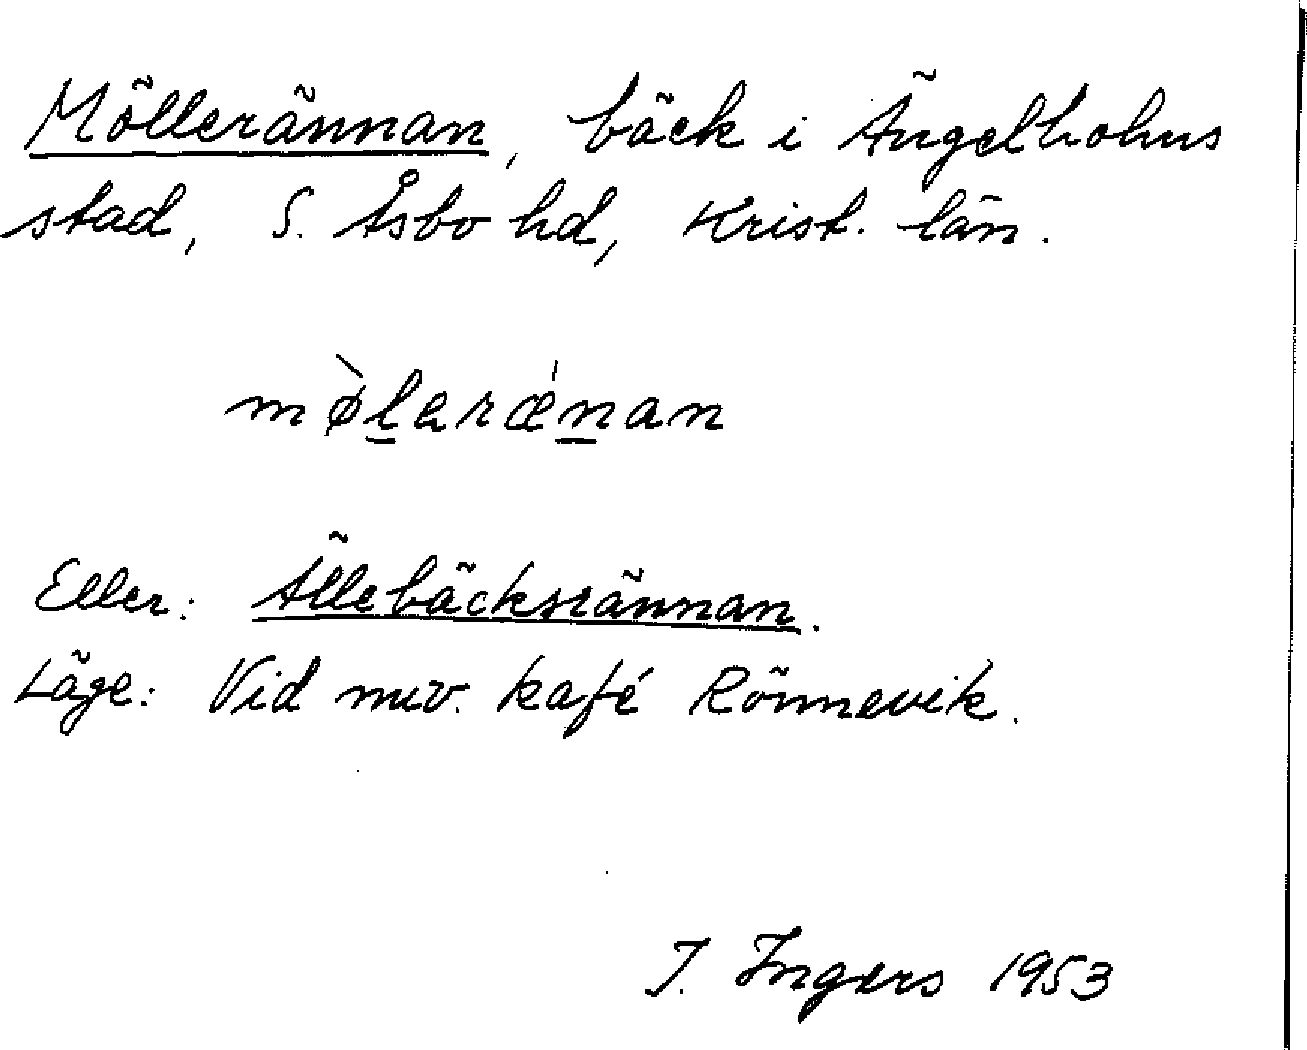 Möllerännan, bäck i Ängelholms
stad, S. Åsbo hd, Krist. län.
mø̀larǽnan
Eller: Ällebäcksrännan.
Läge: Vid nuv. kafé Rönnevik.
I. Ingers 1953